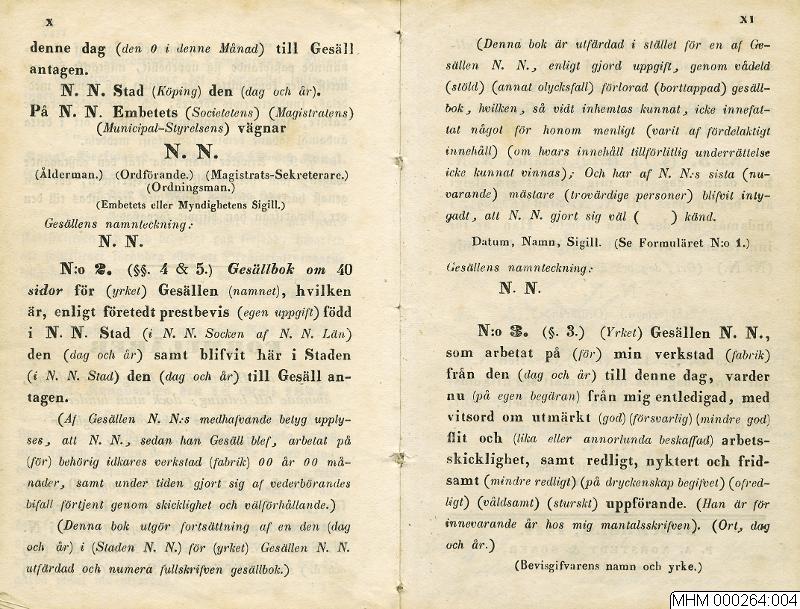 X
denne dag (den 0 i denne Månad) till Gesäll
antagen.
N. N. Stad (Köping) den (dag och år).
På N. N. Embetets (Societetens) (Magistratens)
(Municipal-Styrelsens) vägnar
N. N.
(Ålderman.) (Ordförande.) (Magistrats-Sekreterare.)
(Ordningsman.)
(Embetets eller Myndighetens Sigill.)
Gesällens namnteckning:
N. N.
N:o 2. (§§. 4 & 5.) Gesällbok om 40
sidor för (yrket) Gesällen (namnet), hvilken
är, enligt företedt prestbevis (egen uppgift) född
i N. N. Stad (i N. N. Socken af N. N. Län)
den (dag och år) samt blifvit här i Staden
(i N. N. Stad) den (dag och år) till Gesäll an-
tagen.
(Af Gesällen N. N:s medhafvande betyg upply-
ses, att N. N., sedan han Gesäll blef, arbetat på
(för) behörig idkares verkstad (fabrik) 00 år 00 må-
nader, samt under tiden gjort sig af vederbörandes
bifall förtjent genom skicklighet och välförhållande.)
(Denna bok utgör fortsättning af en den (dag
och år) i (Staden N. N.) för (yrket) Gesällen N. N.
utfärdad och numera fullskrifven gesällbok.)
XI
(Denna bok är utfärdad i stället för en af Ge-
sällen N. N., enligt gjord uppgift, genom vådeld
(stöld) (annat olycksfall) förlorad (borttappad) gesäll-
bok, hvilken, så vidt inhemtas kunnat, icke innefat-
tat något för honom menligt (varit af fördelaktigt
innehåll) (om hvars innehåll tillförlitlig underrättelse
icke kunnat vinnas); Och har af N. N:s sista (nu-
varande) mästare (trovärdige personer) blifvit inty-
gadt, att N. N. gjort sig väl ( ) känd.
Datum, Namn, Sigill. (Se Formuläret N:o 1.)
Gesällens namnteckning:
N. N.
N:o 3. (§. 3.) (Yrket) Gesällen N. N.,
som arbetat på (för) min verkstad (fabrik)
från den (dag och år) till denne dag, varder
nu (på egen begäran) från mig entledigad, med
vitsord om utmärkt (god) (försvarlig) (mindre god)
flit och (lika eller annorlunda beskaffad) arbets-
skicklighet, samt redligt, nyktert och frid-
samt (mindre redligt) (på dryckenskap begifvet) (ofred-
ligt) (våldsamt) (sturskt) uppförande. (Han är för
innevarande år hos mig mantalsskrifven). (Ort, dag
och år.)
(Bevisgifvarens namn och yrke.)
MHM 000264:004